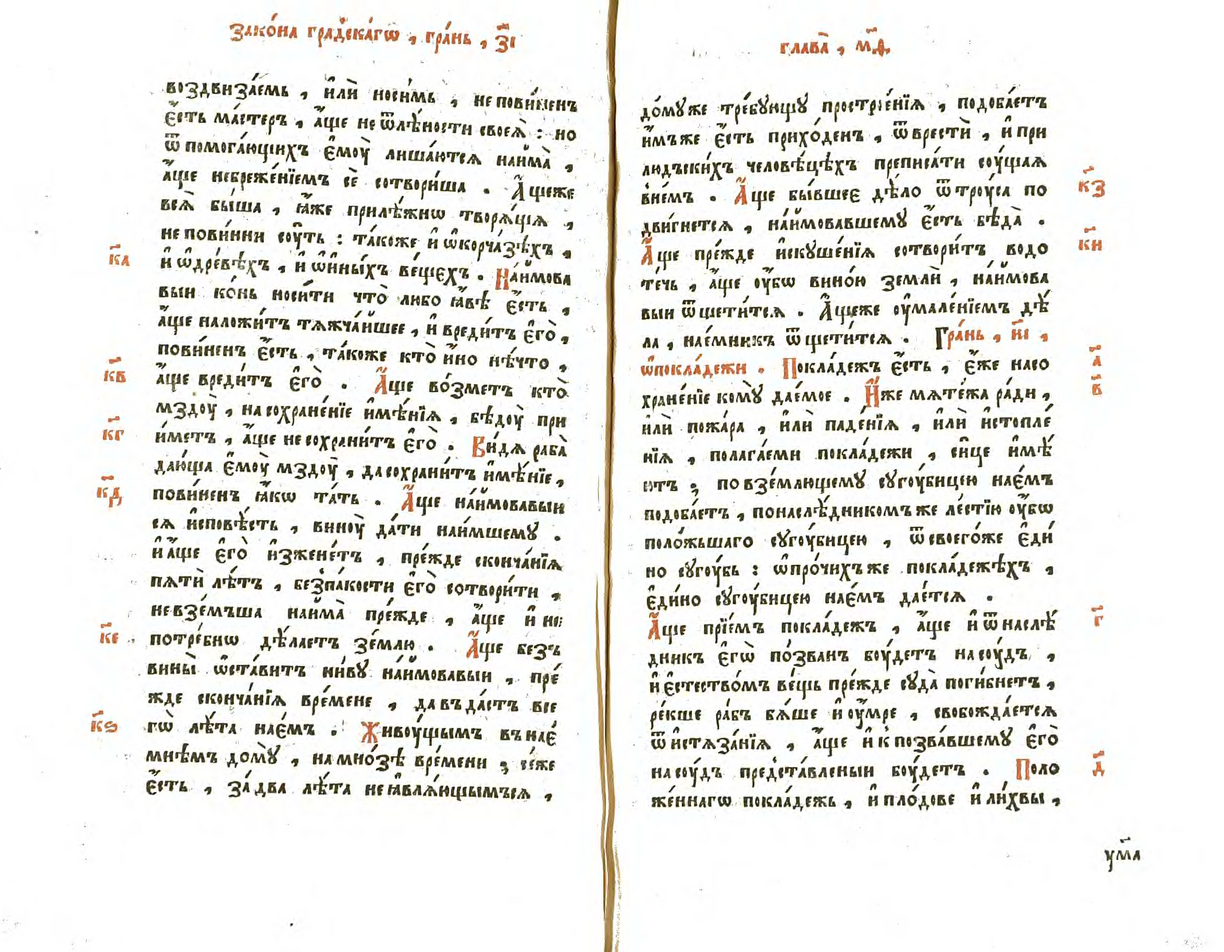 Зако́на градска́гѡ , гра́нь , з҃і
воздвиза́емь , и҆лѝ носи́мь , неповиненъ
є҆́сть ма́стеръ , а҆́ще не ѿлѣ́ности своеѧ̀ : но
ѿ помога́ющихъ є҆моу̀ лиша́ютсѧ найма̀ ,
а҆́ще небреже́нїемъ сѐ сотвори́ша . А҆́щеже
всѧ̀ бы́ша , ꙗ҆́же прилѣ́жнѡ творѧ́щїѧ ,
неповинни соу́ть : та́коже и҆ ѡ҆корча́зѣхъ ,
к҃а
и҆ ѡ҆дре́вѣхъ , и҆ ѡ҆и҆ны́хъ ве́щехъ . Наи҆мова
выи ко́нь носи́ти что̀ либо ꙗ҆́вѣ є҆́сть ,
а҆́ще наложи́тъ тѧжча́йшее , и҆ вреди́тъ є҆го̀ ,
повиненъ є҆́сть , та́коже кто̀ и҆но нѣ́что ,
к҃в
а҆́ще вреди́тъ є҆го̀ . А҆́ще во́зметъ кто̀
мздоу̀ , насохране́нїе и҆мѣ́нїѧ , бѣдоу̀ при
к҃г
и́метъ , а҆́ще несохрани́тъ є҆го̀ . Ви́дѧ раба̀
даю́ща є҆моу̀ мздоу̀ , дасохрани́тъ и҆мѣ́нїе ,
к҃д
пови́ненъ ꙗ҆́кѡ та́ть . А҆́ще наи҆мовавыи
сѧ и҆сповѣ́сть , виноу̀ да́ти наи́мшему .
и҆ а҆́ще є҆го̀ и҆зжене́тъ , пре́жде сконча́нїѧ
пѧтѝ лѣ́тъ , безпакости є҆го̀ сотвори́ти ,
невзе́мъша найма̀ пре́жде , а҆́ще и҆ не
к҃е
потре́бнѡ дѣ́лаетъ зе́млю . А҆́ще безъ
вины̀ ѡ҆ста́витъ ни́ву наи҆мовавыи , пре́
жде сконча́нїѧ вре́мене , давъда́стъ все
к҃ѕ
гѡ̀ лѣ́та нае́мъ . Живоу́щымъ въ нае́
мнѣмъ дому̀ , на мно́зѣ вре́мени , се́же
є҆́сть , за́два лѣ́та не ꙗ҆влѧ́ющымъсѧ ,
глава̀ , м҃ѳ
до́муже тре́бующу простре́нїѧ , подоба́етъ
и҆́мъже є҆́сть прихо́денъ , ѿврестѝ , и҆ при
людъски́хъ человѣ́цѣхъ преписа́ти соу́щаѧ
к҃з
вне́мъ . А҆́ще бы́вшеє дѣ́ло ѿ троу́са по
дви́гнетсѧ , наи҆мовавшему є҆́сть бѣда̀ .
к҃и
А҆́ще пре́жде и҆скуше́нїѧ сотвори́тъ водо
те́чь , а҆́ще оу҆́бѡ вино́ю землѝ , наи҆мова
выи ѿщети́тсѧ . А҆́щеже оу҆мале́нїемъ дѣ́
ла , нае́мникъ ѿщети́тсѧ . Гра́нь , и҃і ,
ѡ҆покла́дежи . Покла́дежъ є҆́сть , є҆́же насо
а҃
хране́нїе кому̀ дае́мое . И҆́же мѧте́жа ра́ди ,
в҃
и҆лѝ пожа́ра , и҆лѝ паде́нїѧ , и҆лѝ и҆стопле́
нїѧ , полага́еми покла́дежи , си́це и҆мѣ́
ютъ , повзе́млющему сугоу́бицею нае́мъ
подоба́етъ , понаслѣ́дникомъже ле́стїю оу҆́бѡ
поло́жьшаго сугоу́бицею , ѿ своего́же є҆ди́
но сугоу́бь : ѡ҆про́чихъже покла́дежѣхъ ,
є҆ди́но сугоу́бицею нае́мъ дае́тсѧ .
г҃
А҆́ще прїе́мъ покла́дежъ , а҆́ще и҆ ѿ наслѣ́
дникъ є҆гѡ̀ по́званъ боу́детъ насоу́дъ ,
и҆ є҆стество́мъ ве́щь пре́жде суда̀ поги́бнетъ ,
ре́кше ра́бъ бѧ́ше и҆ оу҆́мре , свобожда́етсѧ
ѿ и҆стѧза́нїѧ , а҆́ще и҆ к позва́вшему є҆го̀
д҃
насоу́дъ предста́вленыи боу́детъ . Поло
же́ннагѡ покла́дежь , и҆ пло́дове и҆ ли́хвы ,
ум҃а